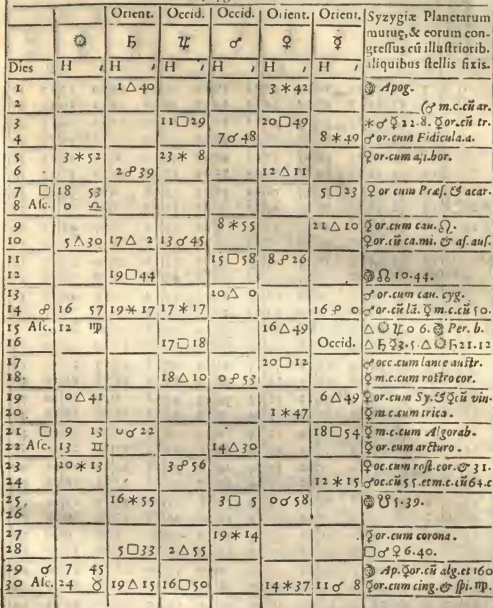 Orient. Occid. Occid. Orient. Orient. Syzygiæ Planetarum
☼ ♄ ♃ ♂ ♀ ☿ mutuę, & eorum con-
gressus cū illustriorib.
Dies H ı H ı H ı H ı H ı H ı aliquibus stellis fixis.
1 1△40 3✶42 Apog.
2 (♂ m.c.cū ar.
3 11□29 20□49 ✶♂☿ 22.8. ☿or.cū tr.
4 7☌48 8✶49 ♂or.cum Fidicula.a.
5 3✶52 23✶8
6 2☍39 12△11
7 □ 18 53 5□23 ♀ or cum Præs. & acar.
8 Asc. 0 ♎
9 8✶55 21△10 ☿or.cum cau. ♌.
10 5△30 17△2 13☌45 ♀or.cū ca.mi. & as.aus.
11 15□58 8☍26
12 19□44 ☊ 10.44.
13 10△0 ♂or.cum cau. cyg.
14 ☍ 16 57 19✶17 17✶17 16☍0 ♂or.cū lā. ☿ m.c.cū 50.
15 Asc. 12 ♍ 16△49 △☼♃ 0 6. Per. b.
16 17□18 Occid. △♄☿3.5.△☼♄21.12
17 20□12 ♂occ.cum lance austr.
18 18△10 0☍53 ☿ m.c.cum rostro cor.
19 0△41 6△49 ♀or.cum Sy.&☿cū vin-
20 1✶47 ☿ m.c.cum trica.
21 □ 9 13 0☌22 18□54 ☿ m.c.cum Algorab.
22 Asc. 13 ♊ 14△30 ☿ or.cum arcturo.
23 20✶13 3☍56 ☿oc.cum rost.cor.& 31.
24 12✶15 ♂oc.cū 55.et m.c.cū64.c
25 16✶55 3□5 0☌58 ☋ 5.39.
26
27 19✶14 ☿or.cum corona.
28 5□33 2△55 □♂♀ 6.40.
29 ☌ 7 45 Ap.☿or.cū alg.et 160
30 Asc. 24 ♉ 19△15 16□50 14✶37 11☌8 ☿or.cum cing.& spi. ♍.